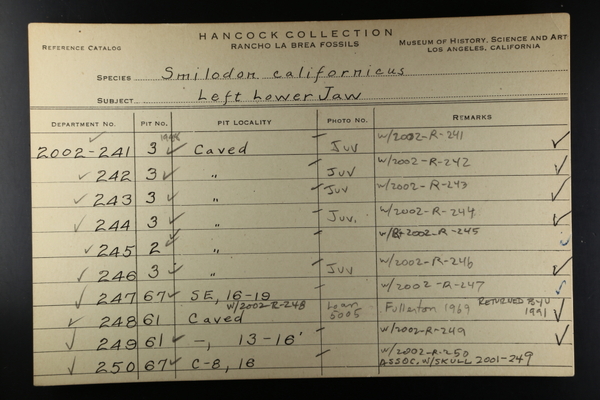 HANCOCK COLLECTION
REFERENCE CATALOG
RANCHO LA BREA FOSSILS
MUSEUM OF HISTORY, SCIENCE AND ART
LOS ANGELES, CALIFORNIA
SPECIES Smilodon californicus
SUBJECT Left Lower Jaw
DEPARTMENT NO. PIT NO. PIT LOCALITY PHOTO NO. REMARKS
2002-241 3 Caved Juv w/2002-R-241
242 3 " Juv w/2002-R-242
243 3 " Juv w/2002-R-243
244 3 " Juv. w/2002-R-244
245 2 " 2002-R-245
246 3 " Juv w/2002-R-246
247 67 SE, 16-19 w/2002-R-247
w/2002-R-248
248 61 Caved Loan 5005 Fullerton 1969 RETURNED BYU 1991
249 61 -, 13-16' w/2002-R-249
250 67 C-8, 16 w/2002-R-250
ASSOC. W/SKULL 2001-249